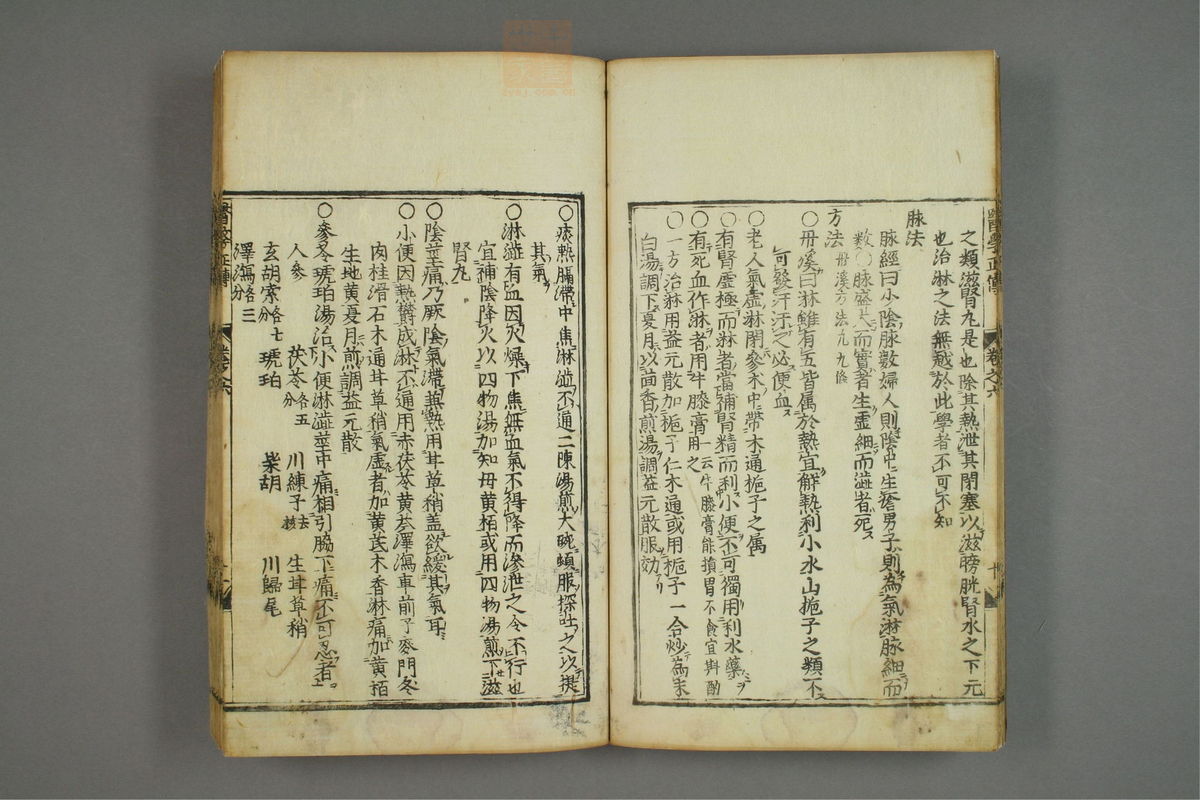 之類滋腎丸是也除其熱泄其閉塞以滋膀胱腎水之下元
也治淋之法無越於此學者不可不知
脉法
脉經曰少陰脉數婦人則陰中生瘡男子則為氣淋脉細而
數〇脉盛大而實者生虛細而澁者死
方法 丹溪方法凡九條
〇丹溪曰淋雖有五皆属於熱宜解熱利小水山梔子之類不
可發汗汗之必便血
〇老人氣虛淋閉參朮中帶木通梔子之属
〇有腎虛極而淋者當補腎精而利小便不可獨用利水藥
〇有死血作淋者用牛膝膏一云牛膝膏能損胃不食宜斟酌用之
〇一方治淋用益元散加梔子仁木通或用梔子一合炒為末
白湯調下夏月以茴香煎湯調益元散服効
〇痰熱膈滯中焦淋澁不通二陳湯煎大碗頓服探吐之以提
其氣
〇淋澁有血因火燥下焦無血氣不得降而滲泄之令不行也
宜補陰降火以四物湯加知母黄栢或用四物湯煎下滋
腎丸
〇陰莖痛乃厥陰氣滯兼熱用甘草稍盖欲緩其氣耳
〇小便因熱欝成淋不通用赤茯苓黄芩澤瀉車前子麥門冬
肉桂滑石木通甘草稍氣虛者加黄芪木香淋痛加黄栢
生地黄夏月煎調益元散
〇參苓琥珀湯治小便淋澁莖中痛相引脇下痛不可忍者
人參 茯苓各五分 川練子去核 生甘草稍
玄胡索各七分 琥珀 柴胡 川歸尾
澤瀉各三分
醫學正傳 卷之六